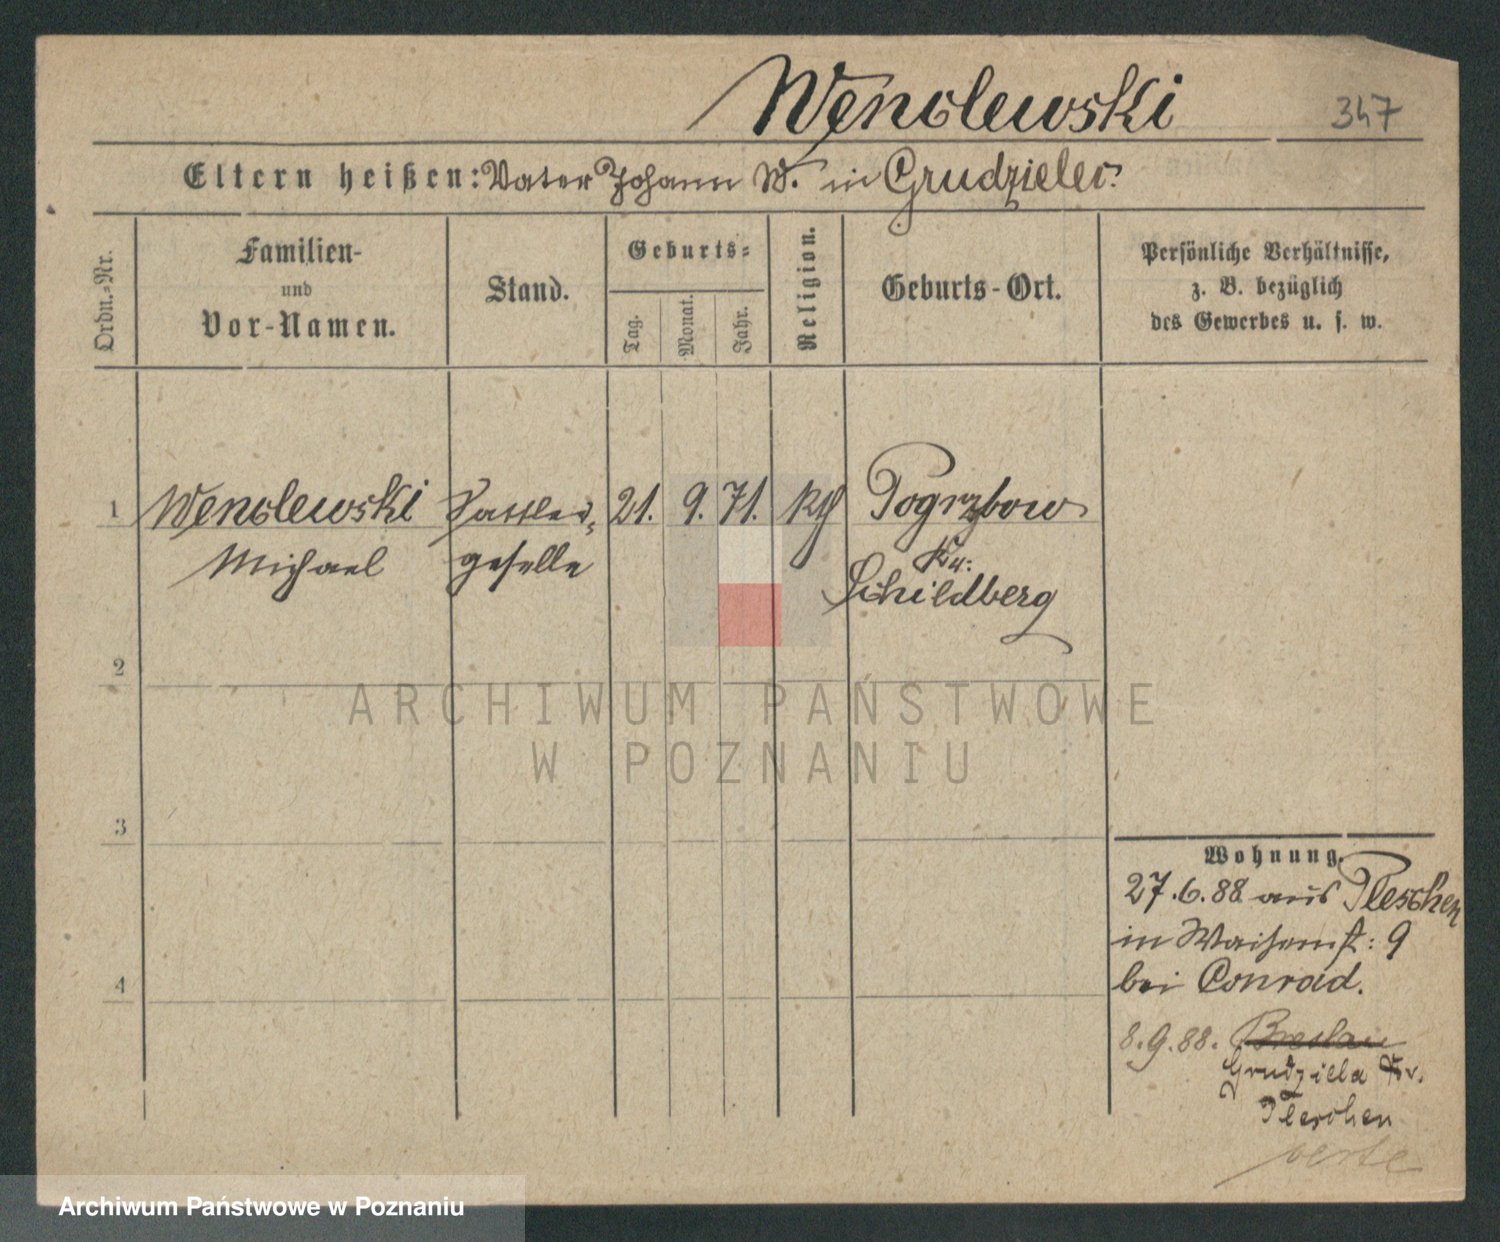 Wenclewski 347
Eltern heißen: Vater Johann W. in Grudzielec.
Ordn.-Nr.
Familien-
und
Vor-Namen.
Stand.
Geburts-
Tag.
Monat.
Jahr.
Religion.
Geburts-Ort.
Persönliche Verhältnisse,
z. B. bezüglich
des Gewerbes u. s. w.
1 Wenclewski Sattler- 21. 9. 71. kth Pogrzbow
Michael geselle Kr:
Schildberg
2
ARCHIWUM PAŃSTWOWE
W POZNANIU
3
Wohnung.
27.6.88 aus Pleschen
in Waisenst: 9
bei Conrad.
4
8.9.88. Breslau
Grudziela Kr.
Pleschen
Archiwum Państwowe w Poznaniu